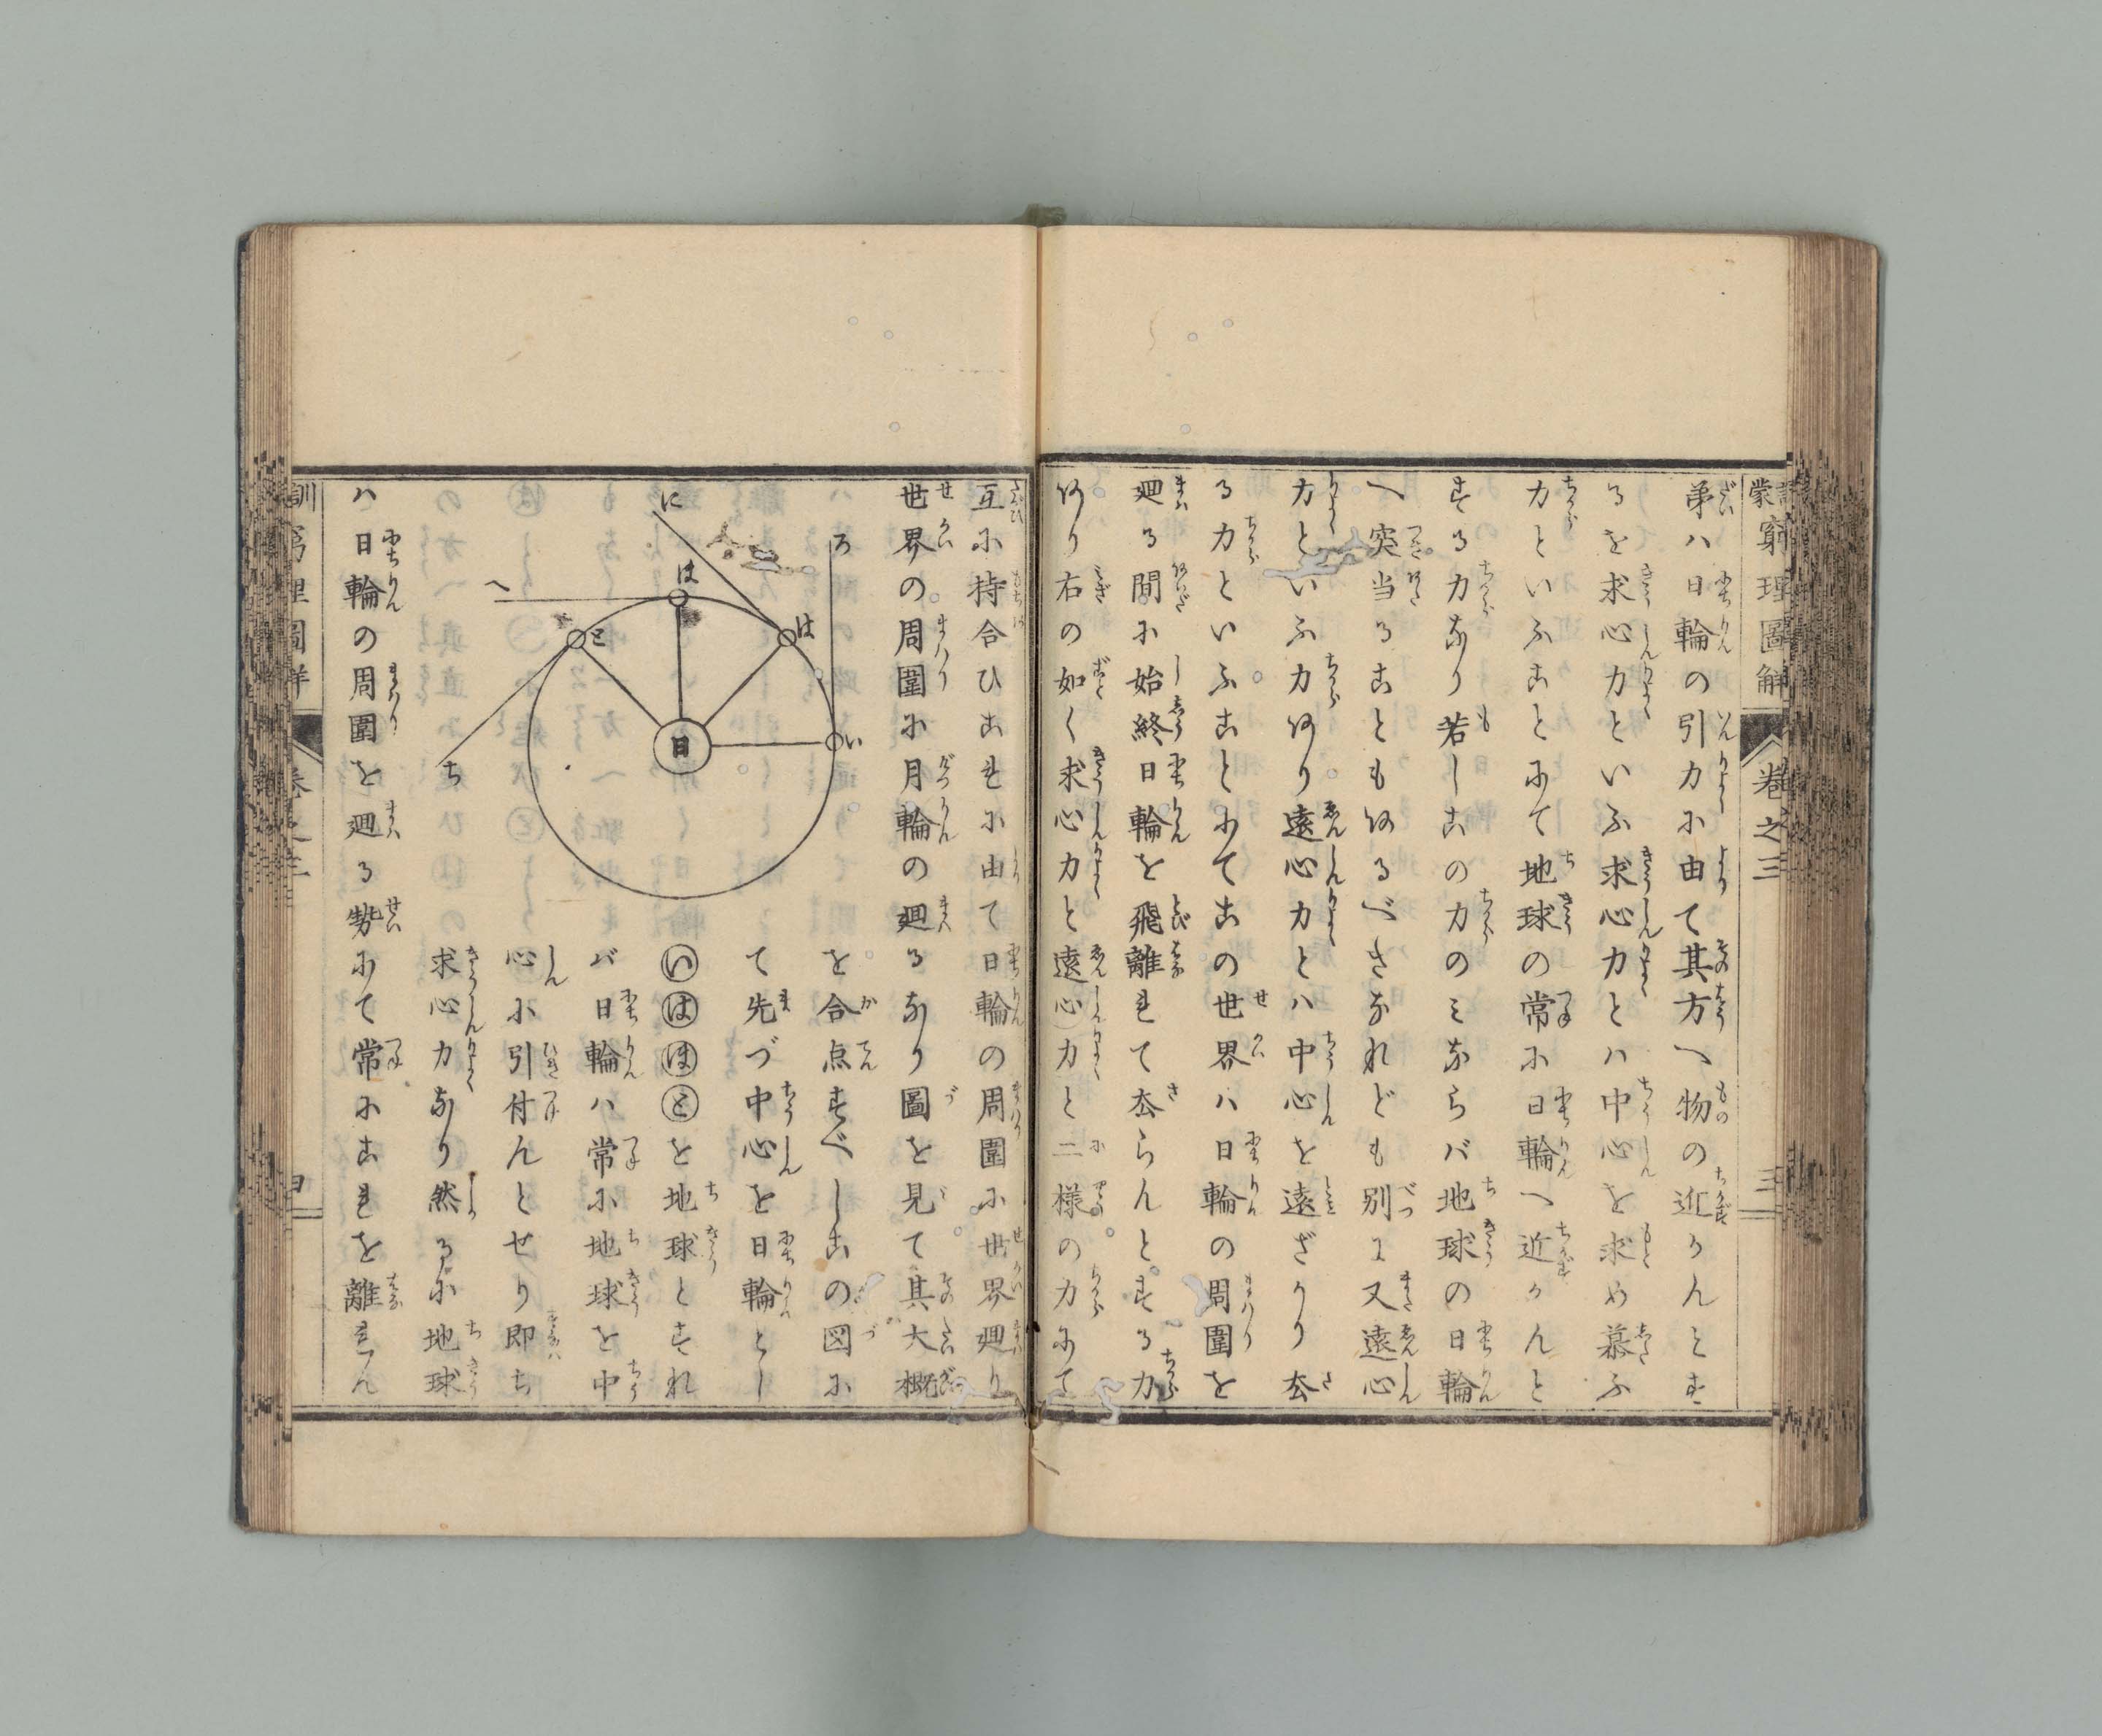 訓蒙 窮理圖解 巻之三 三
弟ハ日輪の引力ふ由て其方へ物の近うんとす
るを求心力といふ求心力とハ中心を求め慕ふ
力といふことゝふて地球の常ふ日輪へ近うんと
する力あり若しこの力のミならバ地球の日輪
へ突当ることもあるべきなれども別に又遠心
力といふ力あり遠心力とハ中心を遠ざかり去
る力といふことふてこの世界ハ日輪の周圍を
廻る間ふ始終日輪を飛離れて去らんとする力
あり右の如く求心力と遠心力と二様の力ふて
互ふ持合ひこれふ由て日輪の周圍ふ世界廻り
世界の周圍ふ月輪の廻るなり圖を見て其大概
を合点すべしこの図ふ
て先づ中心を日輪とし
いはほとを地球とすれ
バ日輪ハ常ふ地球を中
心ふ引付んとせり即ち
求心力なり然るふ地球
ハ日輪の周圍を廻る勢ふて常ふこれを離れん
い
ろ
は
に
ほ
へ
と
ち
日